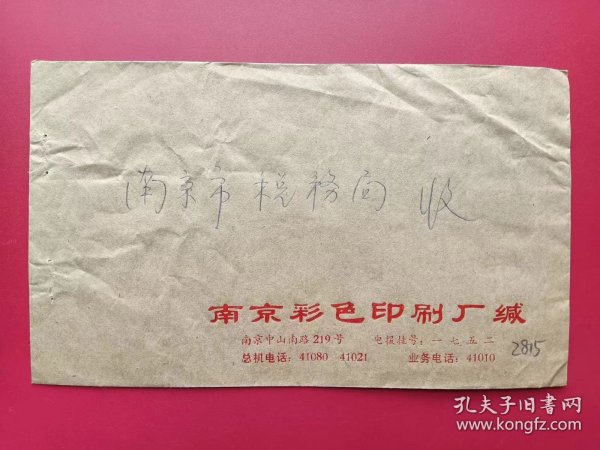 南京市税務局 收
南京彩色印刷厂缄
南京中山南路219号 电报挂号：一七五二
总机电话：41080 41021 业务电话：41010
2815
孔夫子旧書网
www.kongfz.com